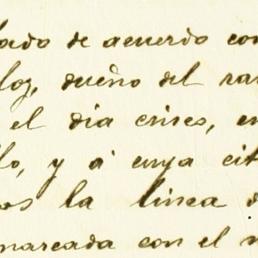 ado de acuerdo con
loz, dueño del ra
el dia cines, en
llo, y á cuya cit
os la linea d
marcada con el n